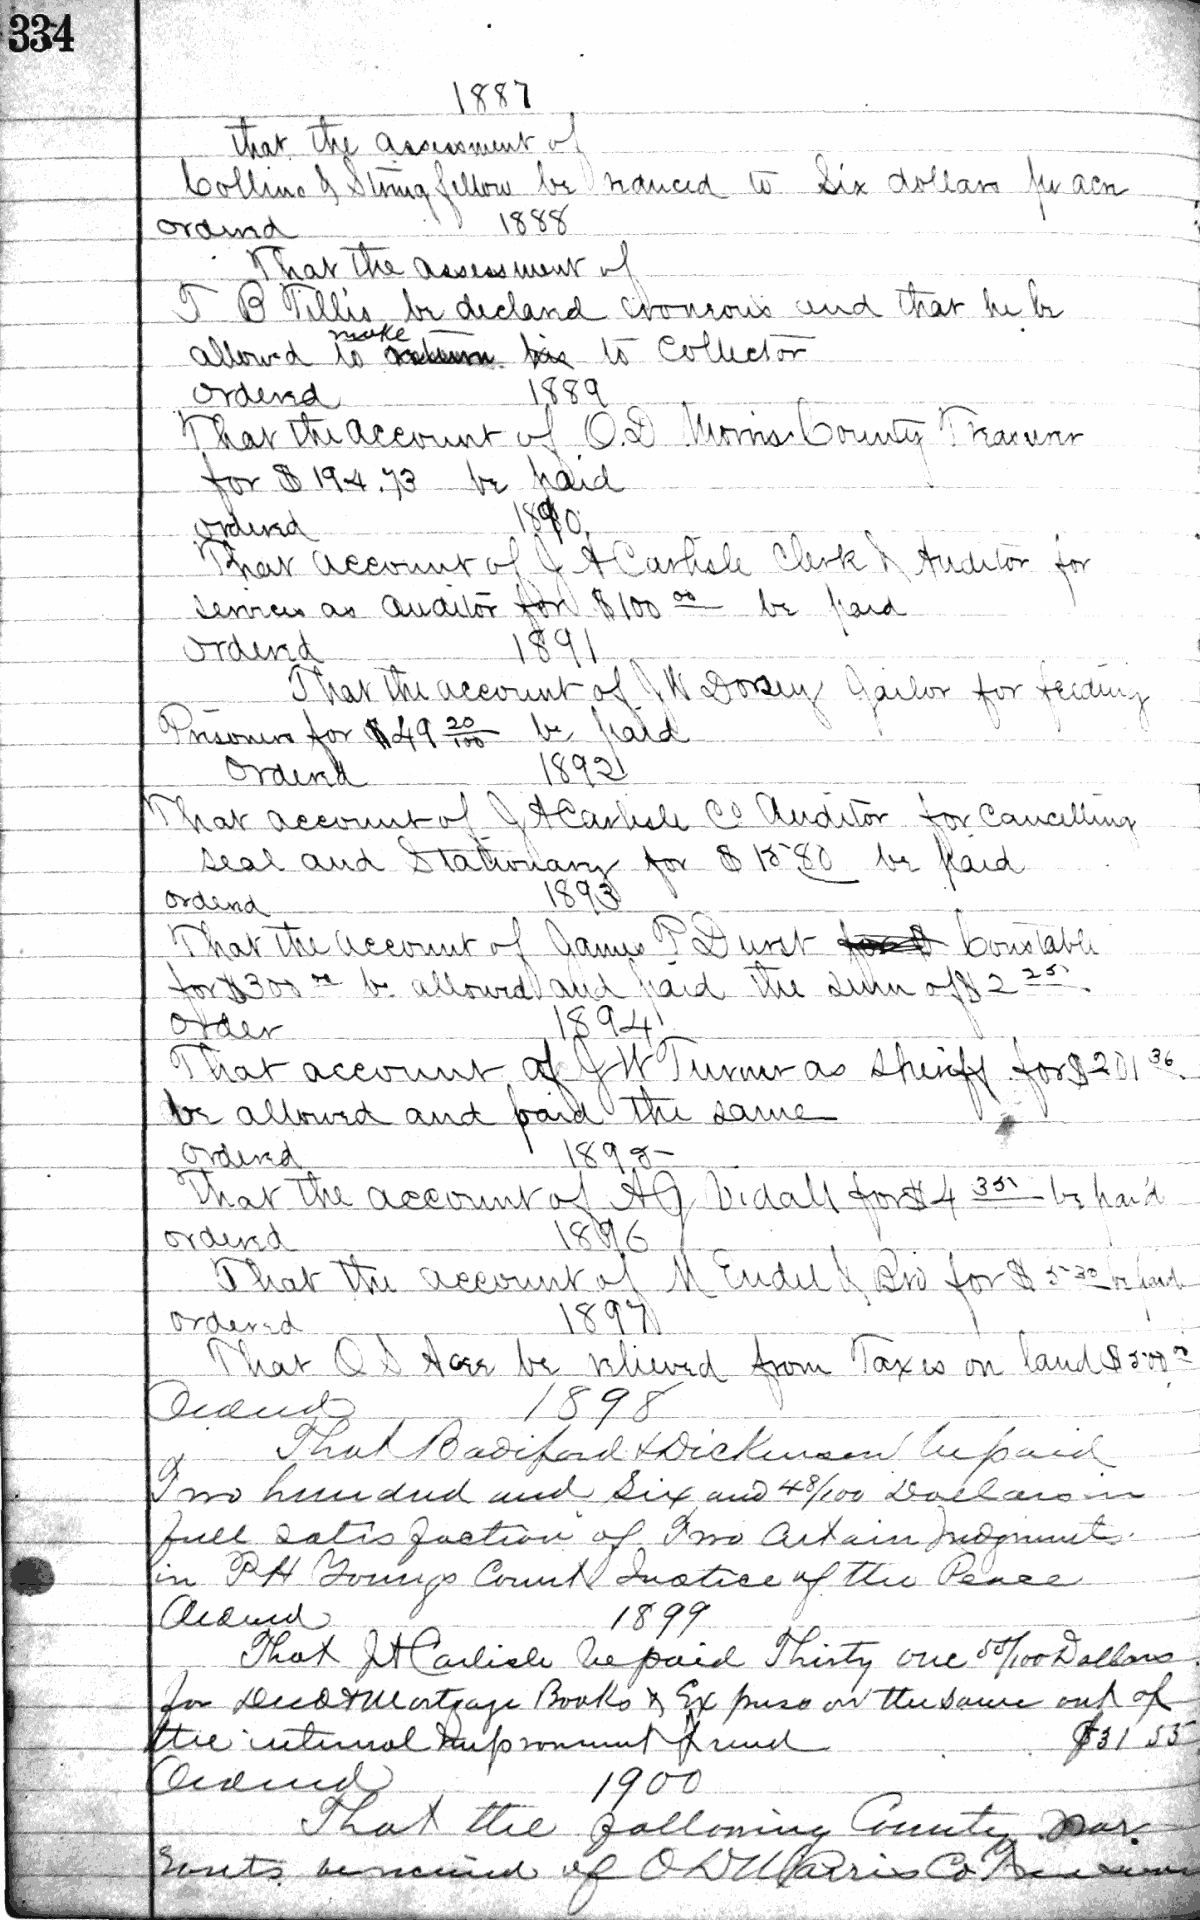 334
1887
That the assessment of
Collins & Stringfellow be reduced to Six dollars per acre
Ordered 1888
That the assessment of
T B Tillis be declared erroneous and that he be
allowed to make to Collector
Ordered 1889
That the account of O.D Morris County Treasurer
for $194.73 be paid
Ordered 1890
That account of J A Carlisle Clerk & Auditor for
services as Auditor for $100 00 be paid
Ordered 1891
That the account of J W Dorsey Jailor for feeding
Prisoners for $49 20/100 be paid
Ordered 1892
That account of J A Carlisle Co Auditor for Cancelling
seal and Stationary for $15 80 be paid
Ordered 1893
That the account of James P Durst Constable
for $300 be allowed and paid the sum of $2 25
Order 1894
That account of J W Turner as Sheriff for $201 36
be allowed and paid the same
Ordered 1895
That the account of A G Vidall for $4 35 be paid
Ordered 1896
That the account of M Endel & Bro for $5 30 be paid
Ordered 1897
That O S be relieved from Taxes on land $500
Ordered 1898
That & Dickenson be paid
Two hundred and Six and 48/100 Dollars in
full satisfaction of Two certain Judgments
in P H Youngs Court Justice of the Peace
Ordered 1899
That J A Carlisle be paid Thirty one 55/100 Dollars
for Deed & Mortgage Books & Expense on the same out of
the internal Improvement Fund $31 55
Ordered 1900
That the following County War
rants received of O D Morris Co Treasurer